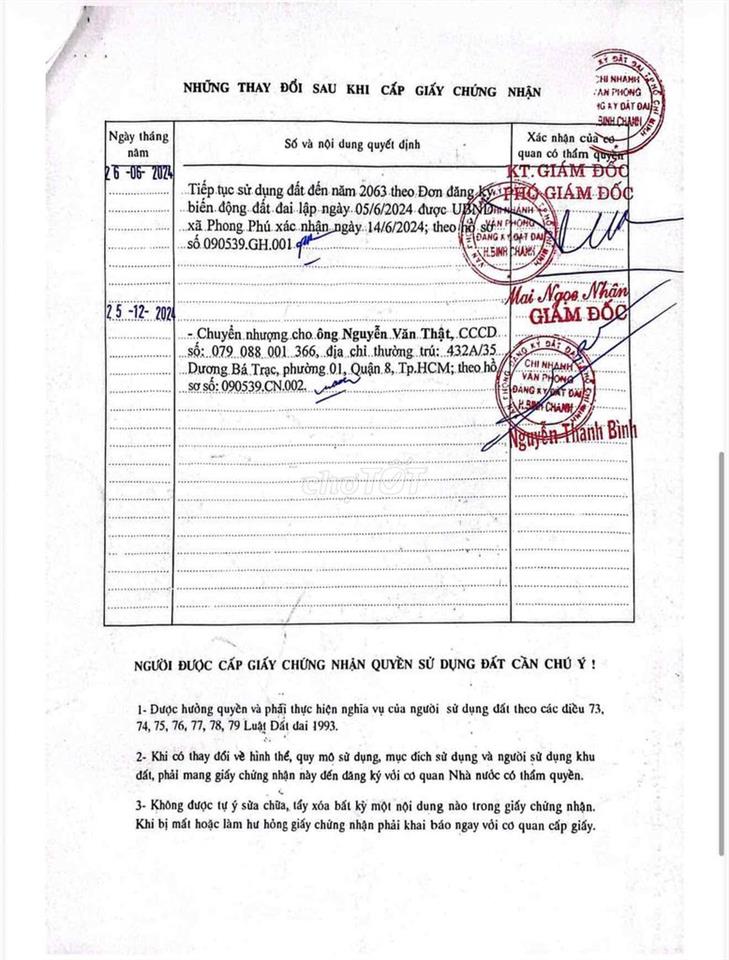 NHỮNG THAY ĐỔI SAU KHI CẤP GIẤY CHỨNG NHẬN
Ngày tháng năm
Số và nội dung quyết định
Xác nhận của cơ quan có thẩm quyền
26-06-2024
Tiếp tục sử dụng đất đến năm 2063 theo Đơn đăng ký
biến động đất đai lập ngày 05/6/2024 được UBND
xã Phong Phú xác nhận ngày 14/6/2024; theo hồ sơ
số 090539.GH.001
KT. GIÁM ĐỐC
PHÓ GIÁM ĐỐC
CHI NHÁNH
VĂN PHÒNG
ĐĂNG KÝ ĐẤT ĐAI
H.BÌNH CHÁNH
Mai Ngọc Nhân
25-12-2024
- Chuyển nhượng cho ông Nguyễn Văn Thật, CCCD
số: 079 088 001 366, địa chỉ thường trú: 432A/35
Dương Bá Trạc, phường 01, Quận 8, Tp.HCM; theo hồ
sơ số: 090539.CN.002.
GIÁM ĐỐC
CHI NHÁNH
VĂN PHÒNG
ĐĂNG KÝ ĐẤT ĐAI
H.BÌNH CHÁNH
Nguyễn Thanh Bình
chợTỐT
NGƯỜI ĐƯỢC CẤP GIẤY CHỨNG NHẬN QUYỀN SỬ DỤNG ĐẤT CẦN CHÚ Ý !
1- Được hưởng quyền và phải thực hiện nghĩa vụ của người sử dụng đất theo các điều 73,
74, 75, 76, 77, 78, 79 Luật Đất đai 1993.
2- Khi có thay đổi về hình thể, quy mô sử dụng, mục đích sử dụng và người sử dụng khu
đất, phải mang giấy chứng nhận này đến đăng ký với cơ quan Nhà nước có thẩm quyền.
3- Không được tự ý sửa chữa, tẩy xóa bất kỳ một nội dung nào trong giấy chứng nhận.
Khi bị mất hoặc làm hư hỏng giấy chứng nhận phải khai báo ngay với cơ quan cấp giấy.